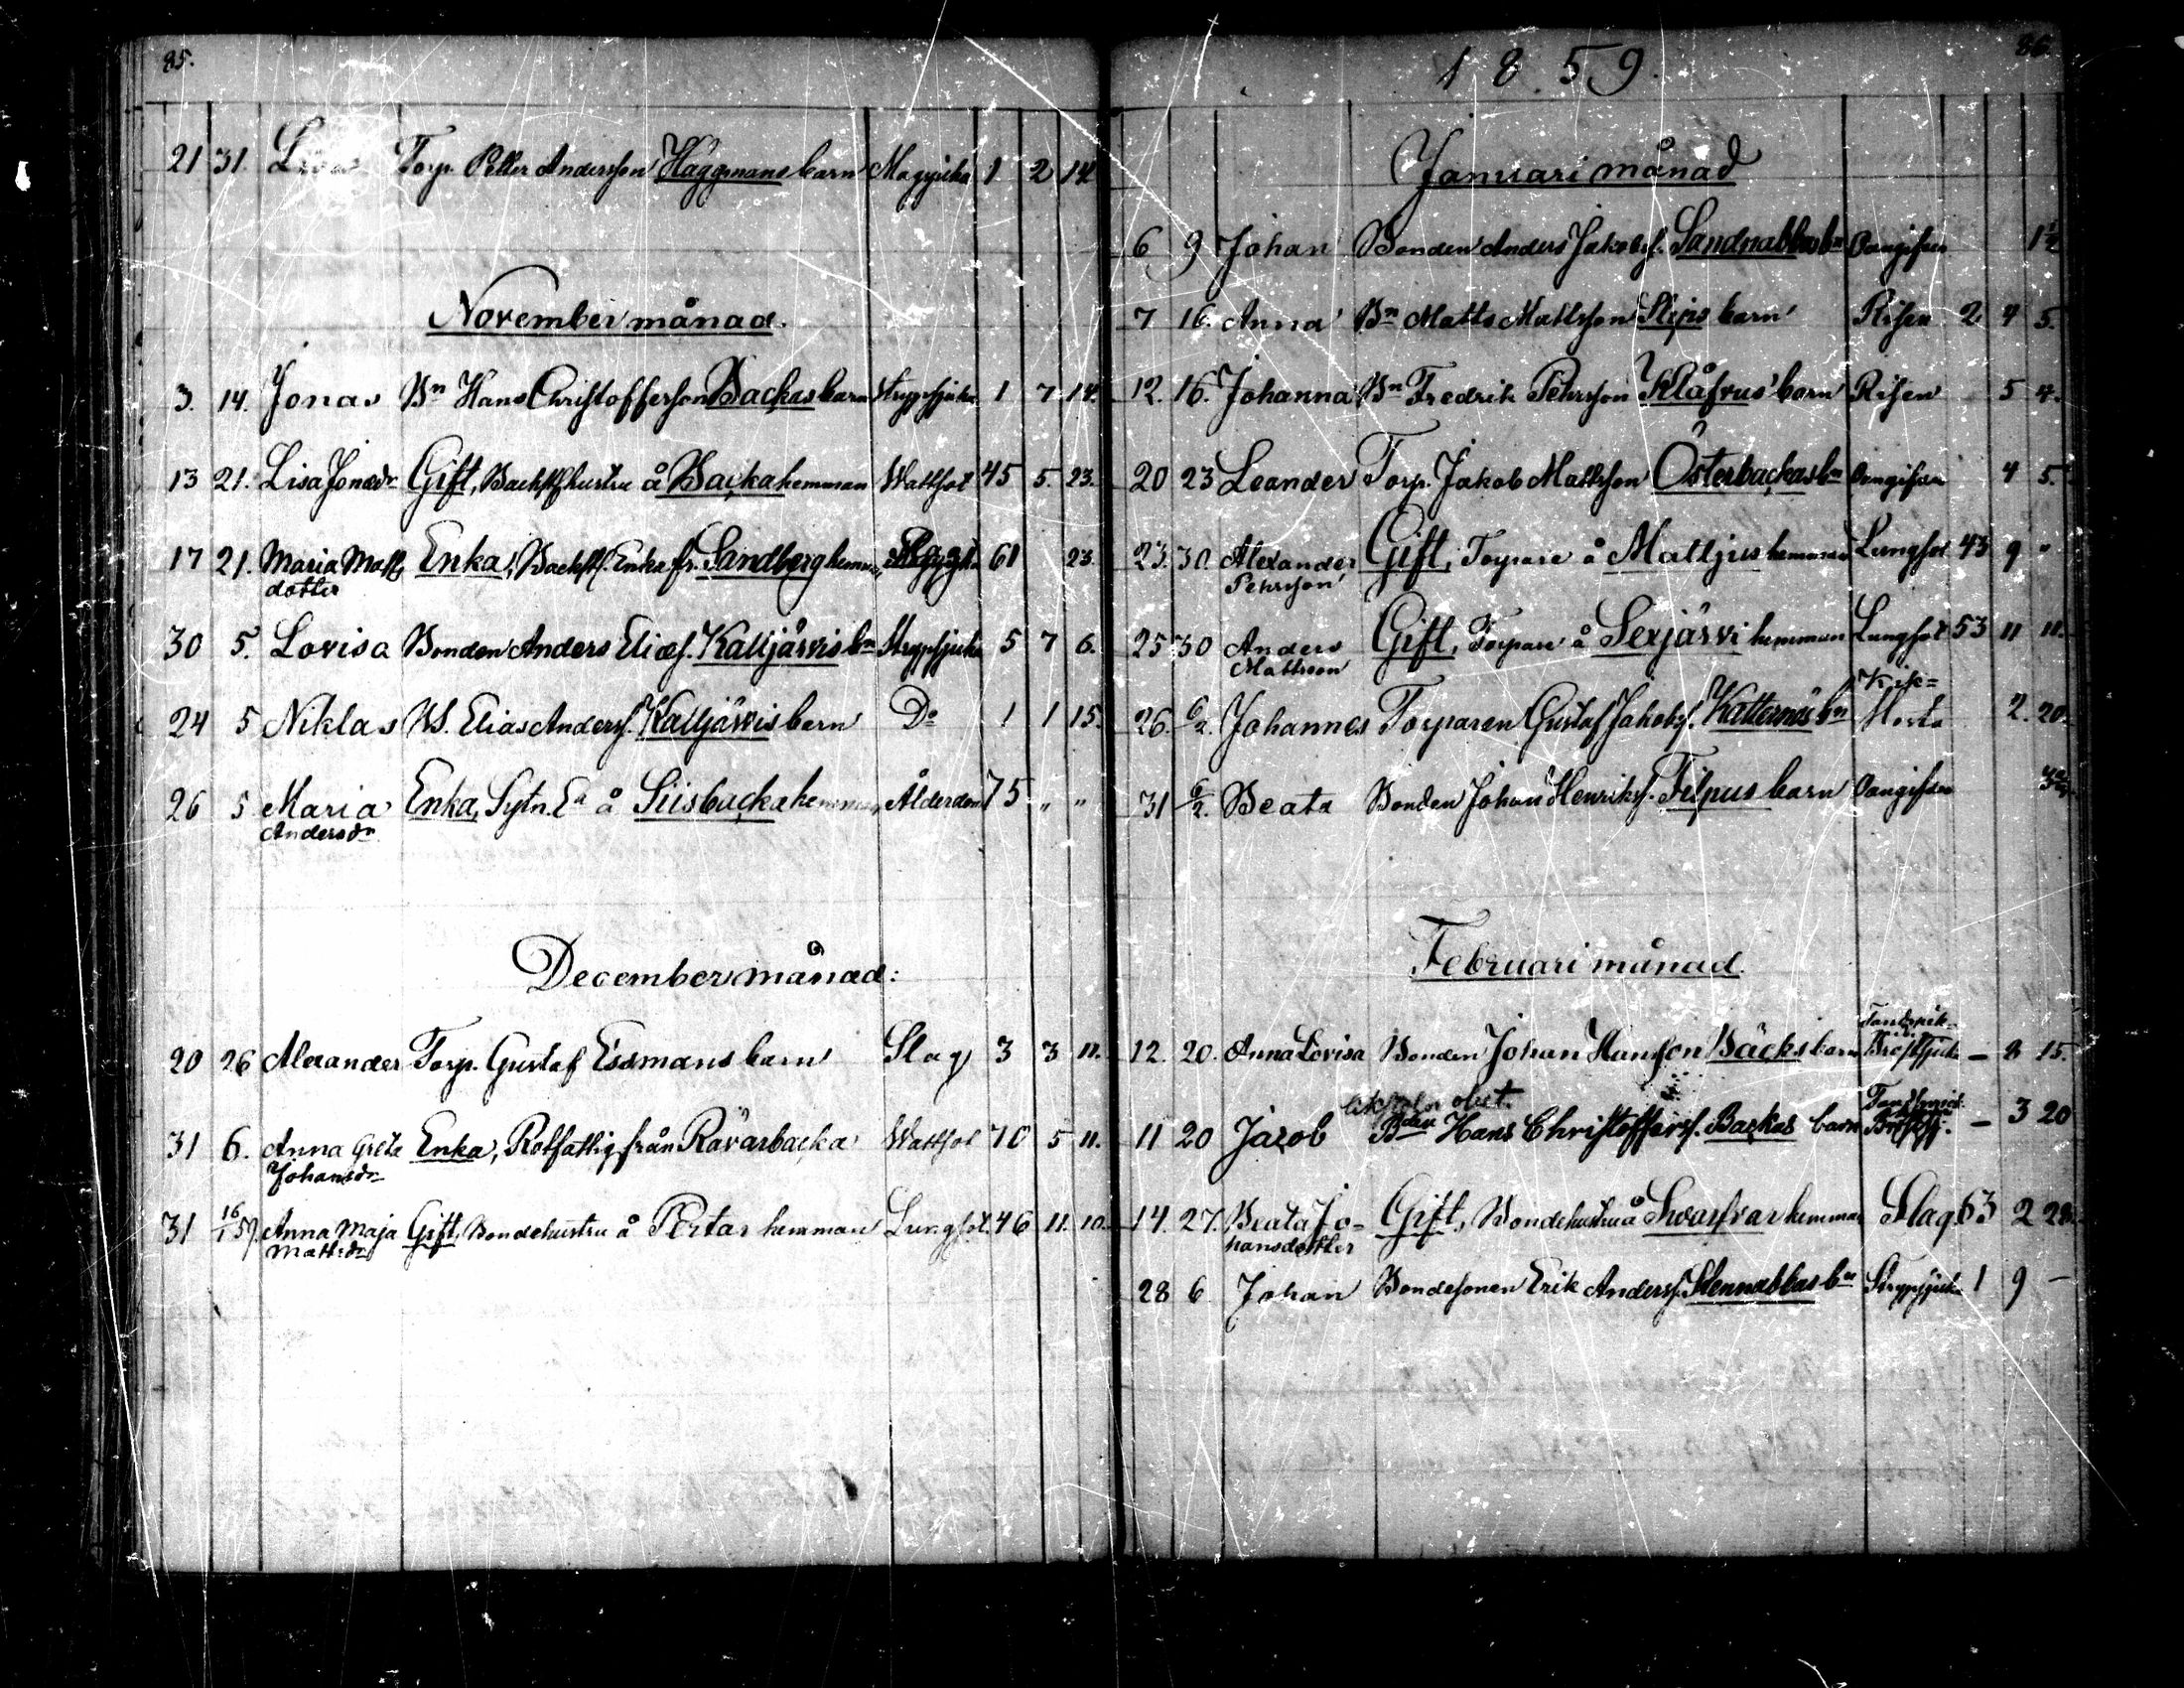 85.
21 31. Torp. Petter Andersson Häggmans barn Magsjuka 1 2 14
November månad.
3. 14. Jonas Bn Hans Christoffersson Backas barn Strypsjuka 1 7 14.
13 21. Lisa Jonsdr. Gift, Backstuhustru å Backa hemman Wattsot 45 5. 23.
17 21. Maria Matts Enka, Backst. Enka fr. Sandberg 61 23.
dotter
30 5. Lovisa Bonden Anders Eliæs. Kalljärvis bn Strypsjuka 5 7 6.
24 5 Niklas Elias Anderss. Kalljärvis barn Do 1 1 15.
26 5 Maria Enka, Sytn. Ea å Siisbacka hemman, Ålderdom 75 " "
Andersdr
December månad:
20 26 Alexander Torp. Gustaf Essmans barn Slag 3 3 11.
31 6. Anna Greta Enka, Rotfattig från Rävarbacka Wattsot 70 5 11.
Johansdr
31 16/1 59. Anna Maja Gift, Bondehustru å Pertar hemman Lungsot. 46 11. 10.
Mattsdr
86.
1859.
Januari månad
6 9 Johan Bonden Anders Jakobss. Sandnabbas bn Oangifven 1½
7 16. Anna Bn Matts Mattsson barn Risen 2 4 5.
12. 16. Johanna Bn Fredrik Pehrsson Klåfrus barn Risen 5 4.
20 23 Leander Torp. Jakob Mattsson Österbackas bn Oangifven 4 5.
23. 30. Alexander Gift, Torpare å Mattjus hemman Lungsot 43 9 "
Pehrsson
25 30 Anders Gift, Torpare å Sexjärvi hemman Lungsot 53 11 11.
Mattsson
Kik=
26. 6/2. Johannes Torparen Gustaf Jakobss. Katternös bn Hosta 2. 20.
31 6/2. Beata Bonden Johan Henrikss. Filpus barn Oangifven
Februari månad.
12. 20. Anna Lovisa Bonden Johan Hansson Bäcks barn Bröstsjuka – 8 15.
obet.
11 20 Jacob Bden Hans Christofferss. Backas barn Bröstsj. – 3 20
14. 27. Beata Jo- Gift, Bondehustru å Svarfvar hemman Slag 63 2 28.
hansdotter
28 6 Johan Bondesonen Erik Anderss. Stennabbas bn Strypsjuka 1 9 –